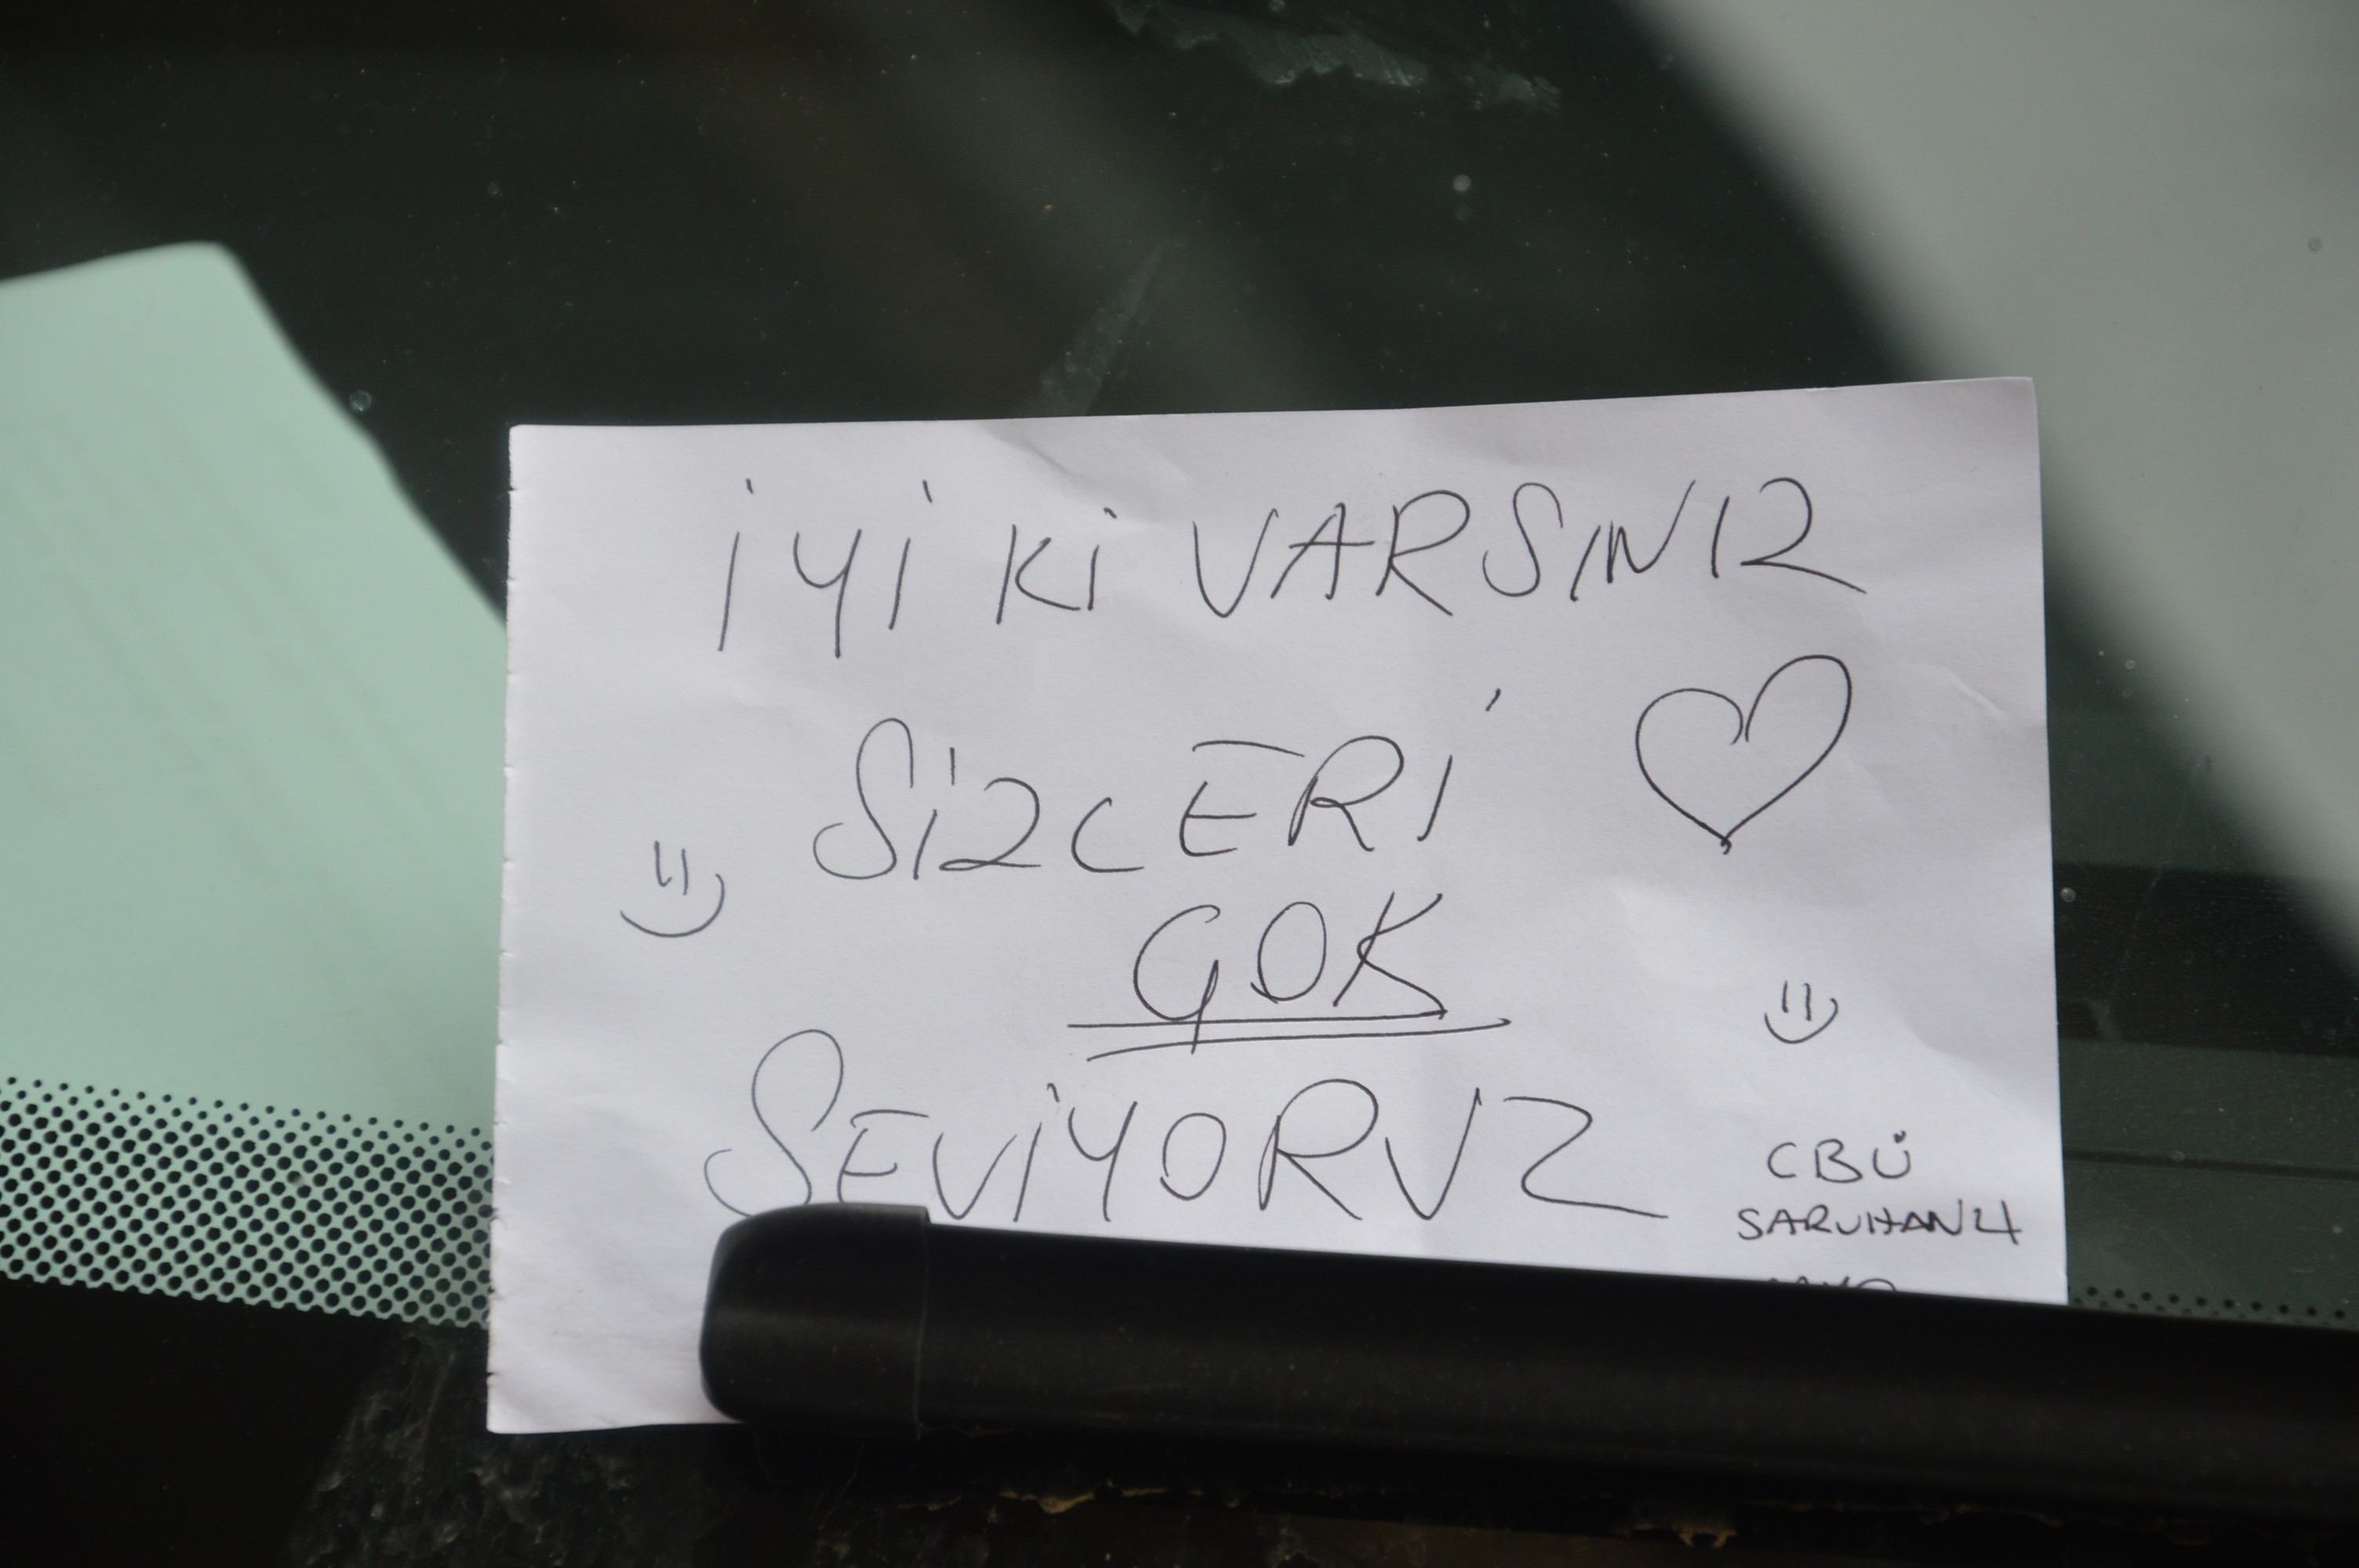 İYİ Kİ VARSINIZ
SİZLERİ
ÇOK
SEVİYORUZ
CBÜ
SARUHANLI